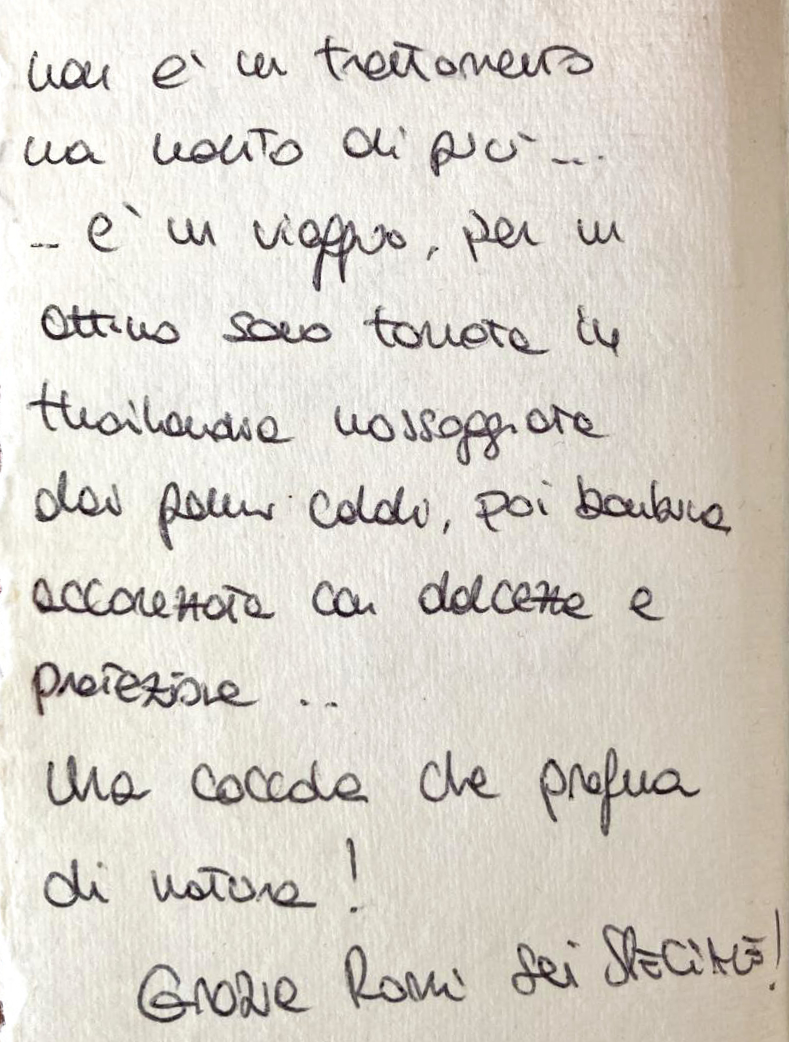 non è un trattamento
ma molto di più ...
... è un viaggio, per un
attimo sono tornata in
thailandia massaggiata
dai palmi caldi, poi bambina
accarezzata con dolcezza e
protezione ..
Una coccola che profuma
di natura!
Grazie Romi sei SPECIALE!